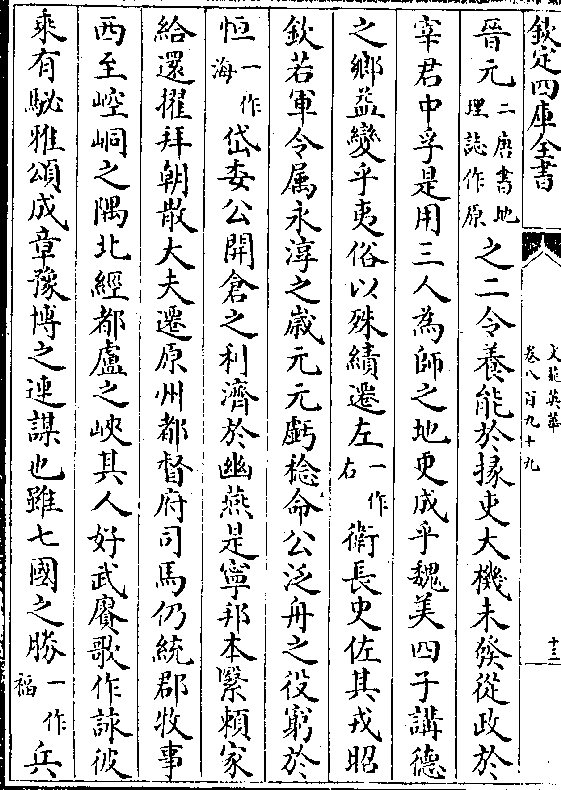 欽定四庫全書
文苑英華
卷八百九十九
十三
晉元二唐書地理誌作原之二令養能於掾吏大機未發從政於
宰君中孚是用三人為師之地更成乎魏美四子講德
之鄉益變乎夷俗以殊績遷左一作右衛長史佐其戎昭
欽若軍令属永淳之歲元元虧稔命公泛舟之役窮於
恒一作海岱委公開倉之利濟於幽燕是寧邦本緊頼家
給還擢拜朝散大夫遷原州都督府司馬仍統郡牧事
西至崆峒之隅北經都盧之峽其人好武賡歌作詠彼
乘有駜雅頌成章豫博之連謀也雖七國之勝一作稲兵